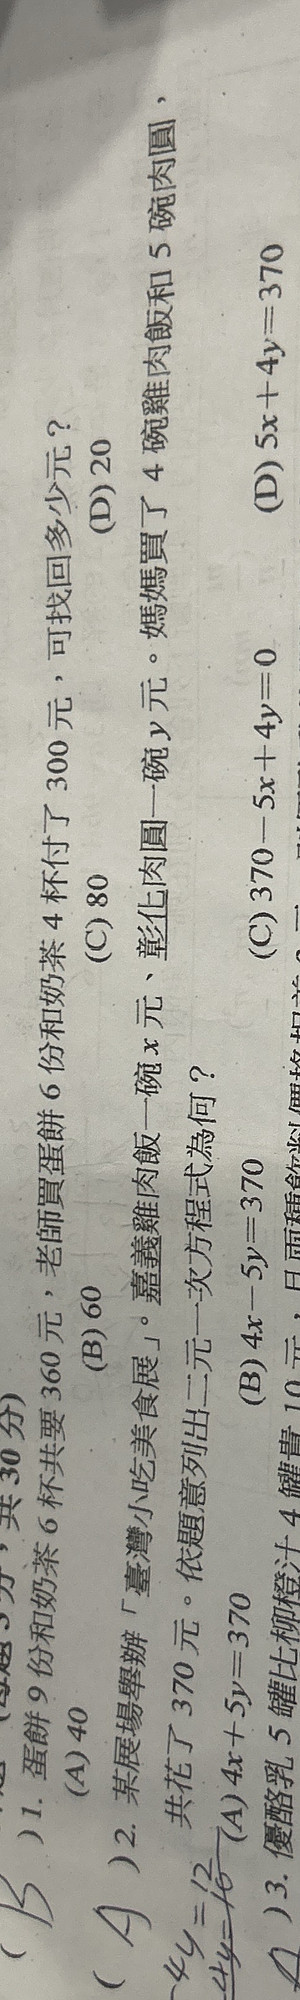 共 30 分)
( B ) 1. 蛋餅 9 份和奶茶 6 杯共要 360 元，老師買蛋餅 6 份和奶茶 4 杯付了 300 元，可找回多少元？
(A) 40 (B) 60 (C) 80 (D) 20
( A ) 2. 某展場舉辦「臺灣小吃美食展」。嘉義雞肉飯一碗 x 元、彰化肉圓一碗 y 元。媽媽買了 4 碗雞肉飯和 5 碗肉圓，
共花了 370 元。依題意列出二元一次方程式為何？
(A) 4x＋5y＝370 (B) 4x－5y＝370 (C) 370－5x＋4y＝0 (D) 5x＋4y＝370
4y=12
4y=16
) 3. 優酪乳 5 罐比柳橙汁 4 罐貴 10 元，且兩種飲料價格相差